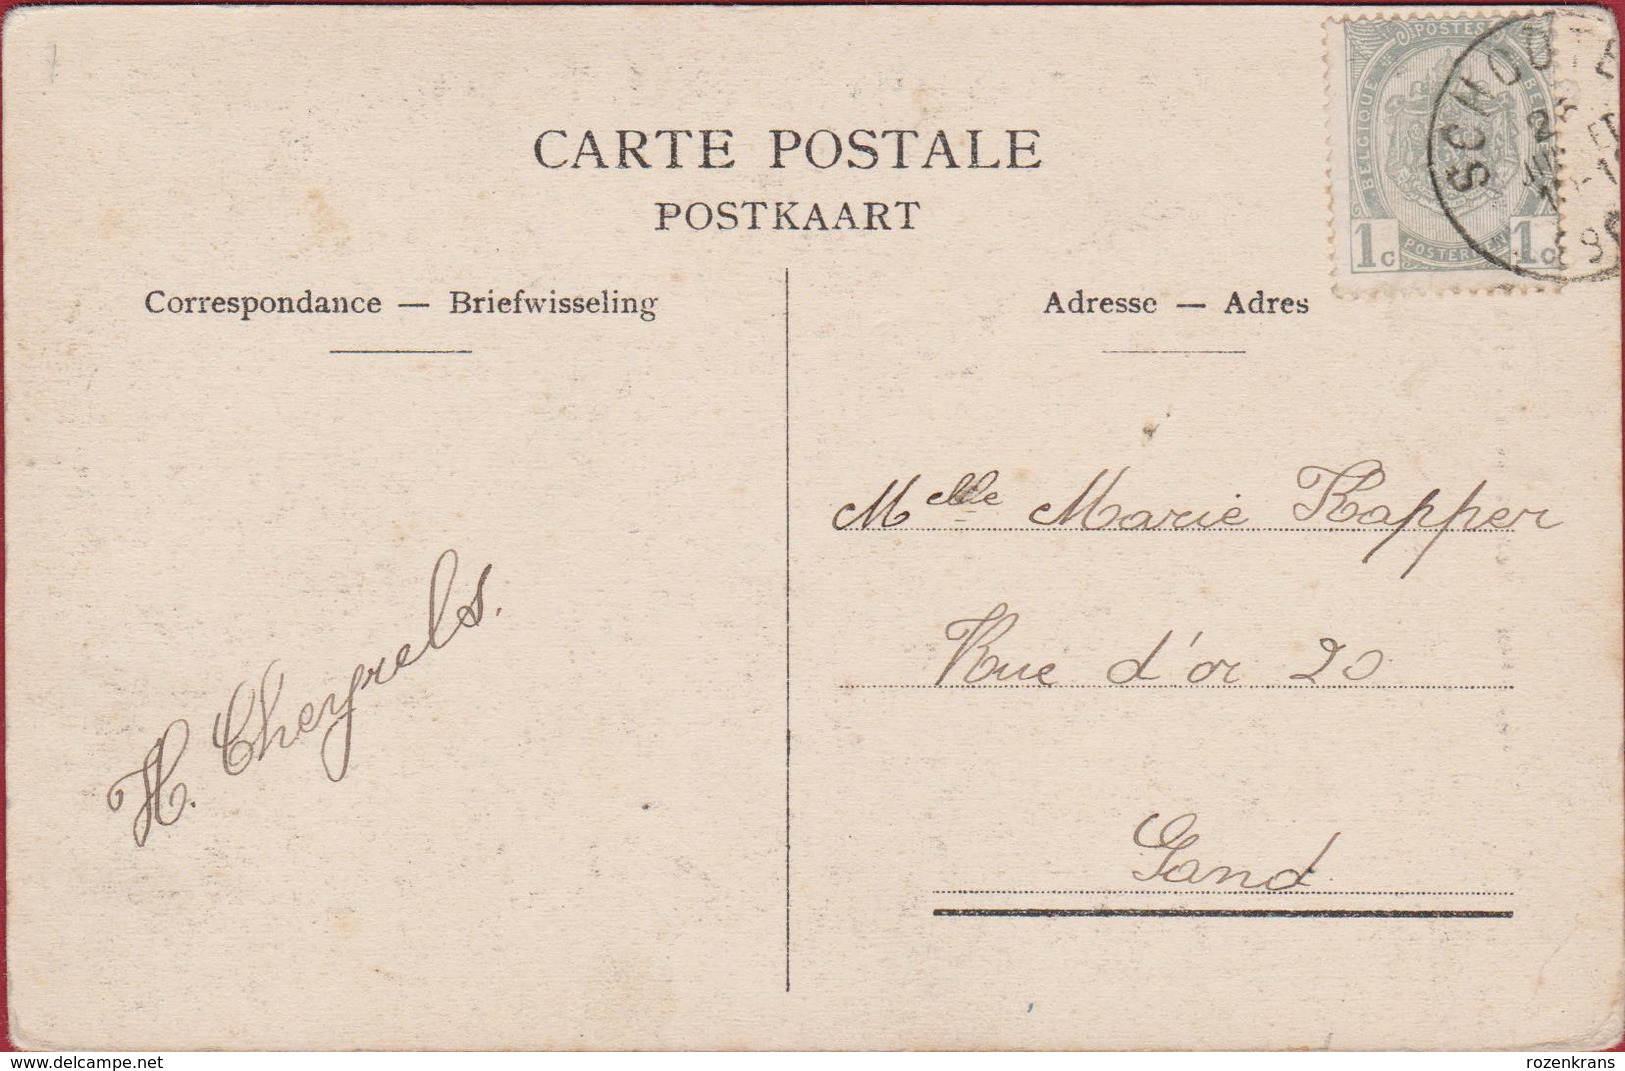 CARTE POSTALE
POSTKAART
Correspondance — Briefwisseling
Adresse — Adres
POSTES
BELGIQUE
1c 1c
SCHOUTE
Melle Marie Kapper
Rue d'or 20
Gand
H. Cheyrels.
https://www.delcampe.net
rozenkrans